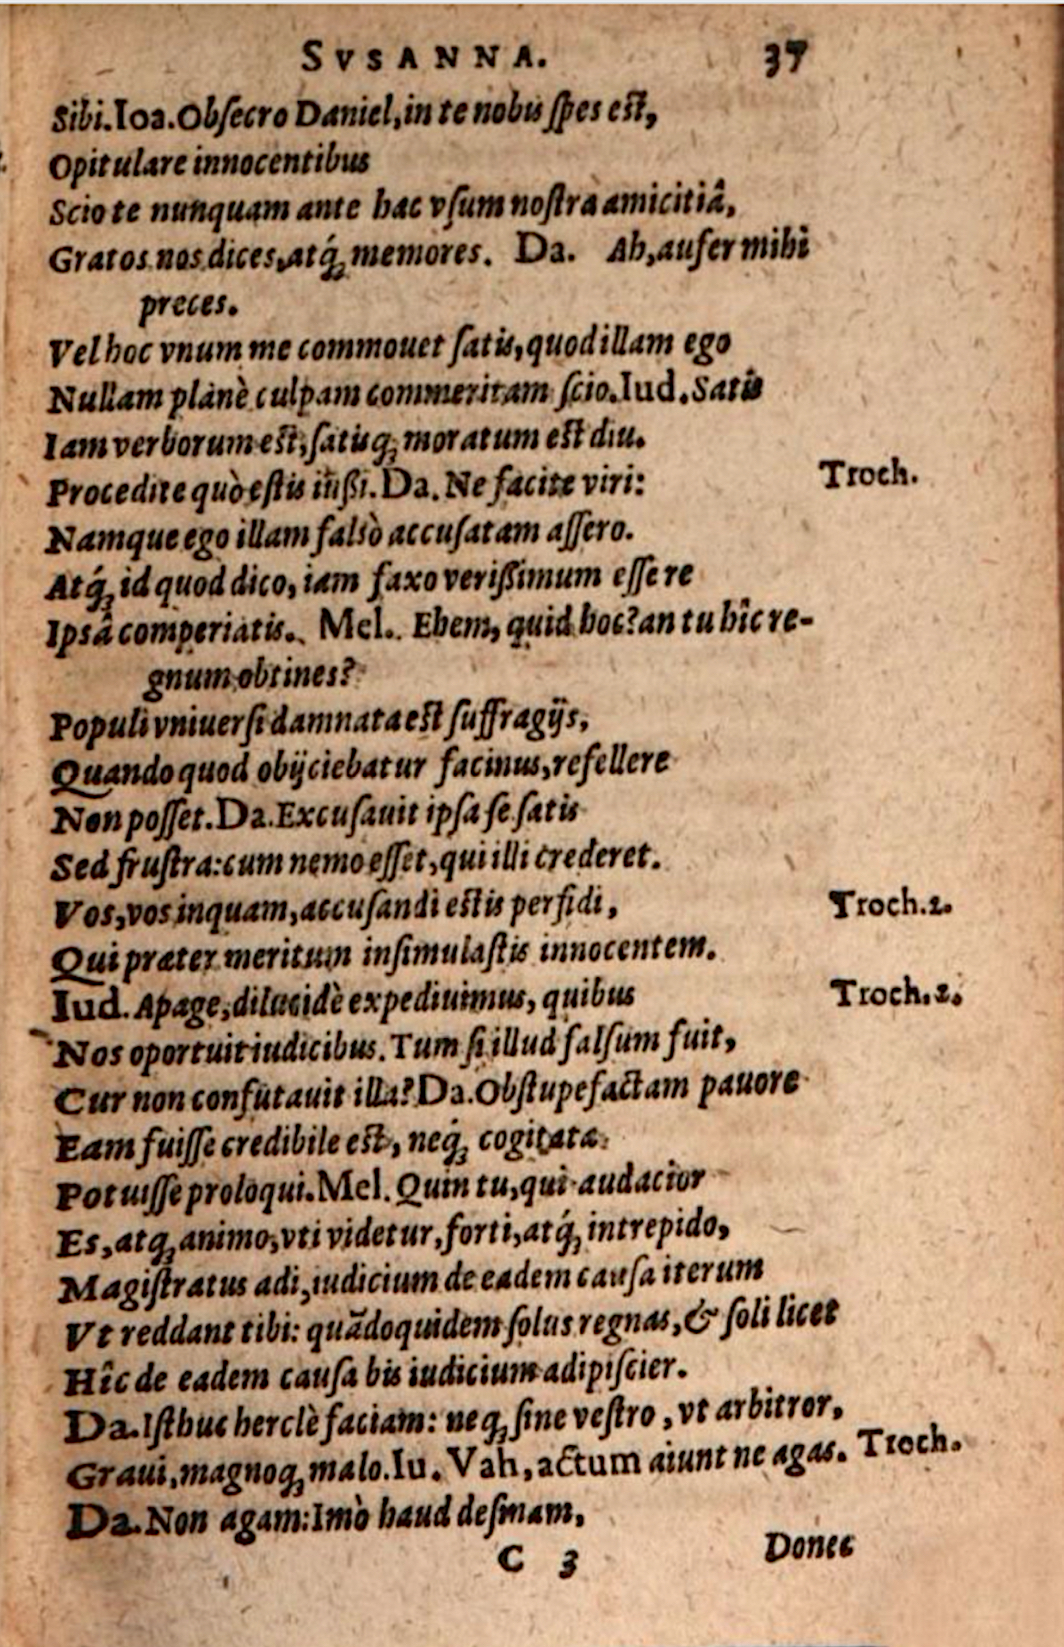 SVSANNA. 37
Sibi. Ioa. Obſecro Daniel, in te nobis ſpes eſt,
Opitulare innocentibus
Scio te nunquam ante hac vſum noſtra amicitiâ,
Gratos nos dices, atq́ꝫ memores. Da. Ah, aufer mihi
preces.
Vel hoc vnum me commouet ſatis, quod illam ego
Nullam planè culpam commeritam ſcio. Iud. Satis
Iam verborum eſt, ſatisqꝫ moratum eſt diu.
Procedite quò eſtis iußi. Da. Ne facite viri: Troch.
Namque ego illam falsò accuſatam aſſero.
Atq́ꝫ id quod dico, iam faxo verißimum eſſe re
Ipsâ comperiatis. Mel. Ehem, quid hoc? an tu hîc re-
gnum obtines?
Populi vniuerſi damnata eſt ſuffragijs,
Quando quod obijciebatur facinus, refellere
Non poſſet. Da. Excuſauit ipſa ſe ſatis
Sed fruſtra: cum nemo eſſet, qui illi crederet.
Vos, vos inquam, accuſandi eſtis perfidi, Troch.2.
Qui præter meritum inſimulaſtis innocentem.
Iud. Apage, dilucidè expediuimus, quibus Troch.2.
Nos oportuit iudicibus. Tum ſi illud falſum fuit,
Cur non confutauit illa? Da. Obſtupefactam pauore
Eam fuiſſe credibile eſt, neq́ꝫ cogitata
Potuiſſe proloqui. Mel. Quin tu, qui audacior
Es, atqꝫ animo, vti videtur, forti, atq́ꝫ intrepido,
Magiſtratus adi, iudicium de eadem cauſa iterum
Vt reddant tibi: quãdoquidem ſolus regnas, & ſoli licet
Hîc de eadem cauſa bis iudicium adipiſcier.
Da. Iſthuc herclè faciam: neqꝫ ſine veſtro, vt arbitror,
Graui, magnoqꝫ malo. Iu. Vah, actum aiunt ne agas. Troch.
Da. Non agam: Imò haud deſinam,
C 3 Donec